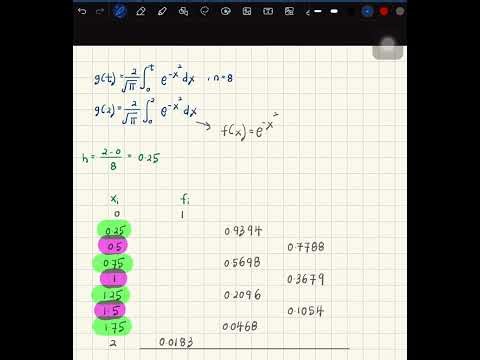 g(t) = 2/√π ∫₀ᵗ e^-x² dx , n=8
g(2) = 2/√π ∫₀² e^-x² dx
→ f(x) = e^-x²
h = 2-0/8 = 0.25
xᵢ fᵢ
0 1
0.25 0.9394
0.5 0.7788
0.75 0.5698
1 0.3679
1.25 0.2096
1.5 0.1054
1.75 0.0468
2 0.0183